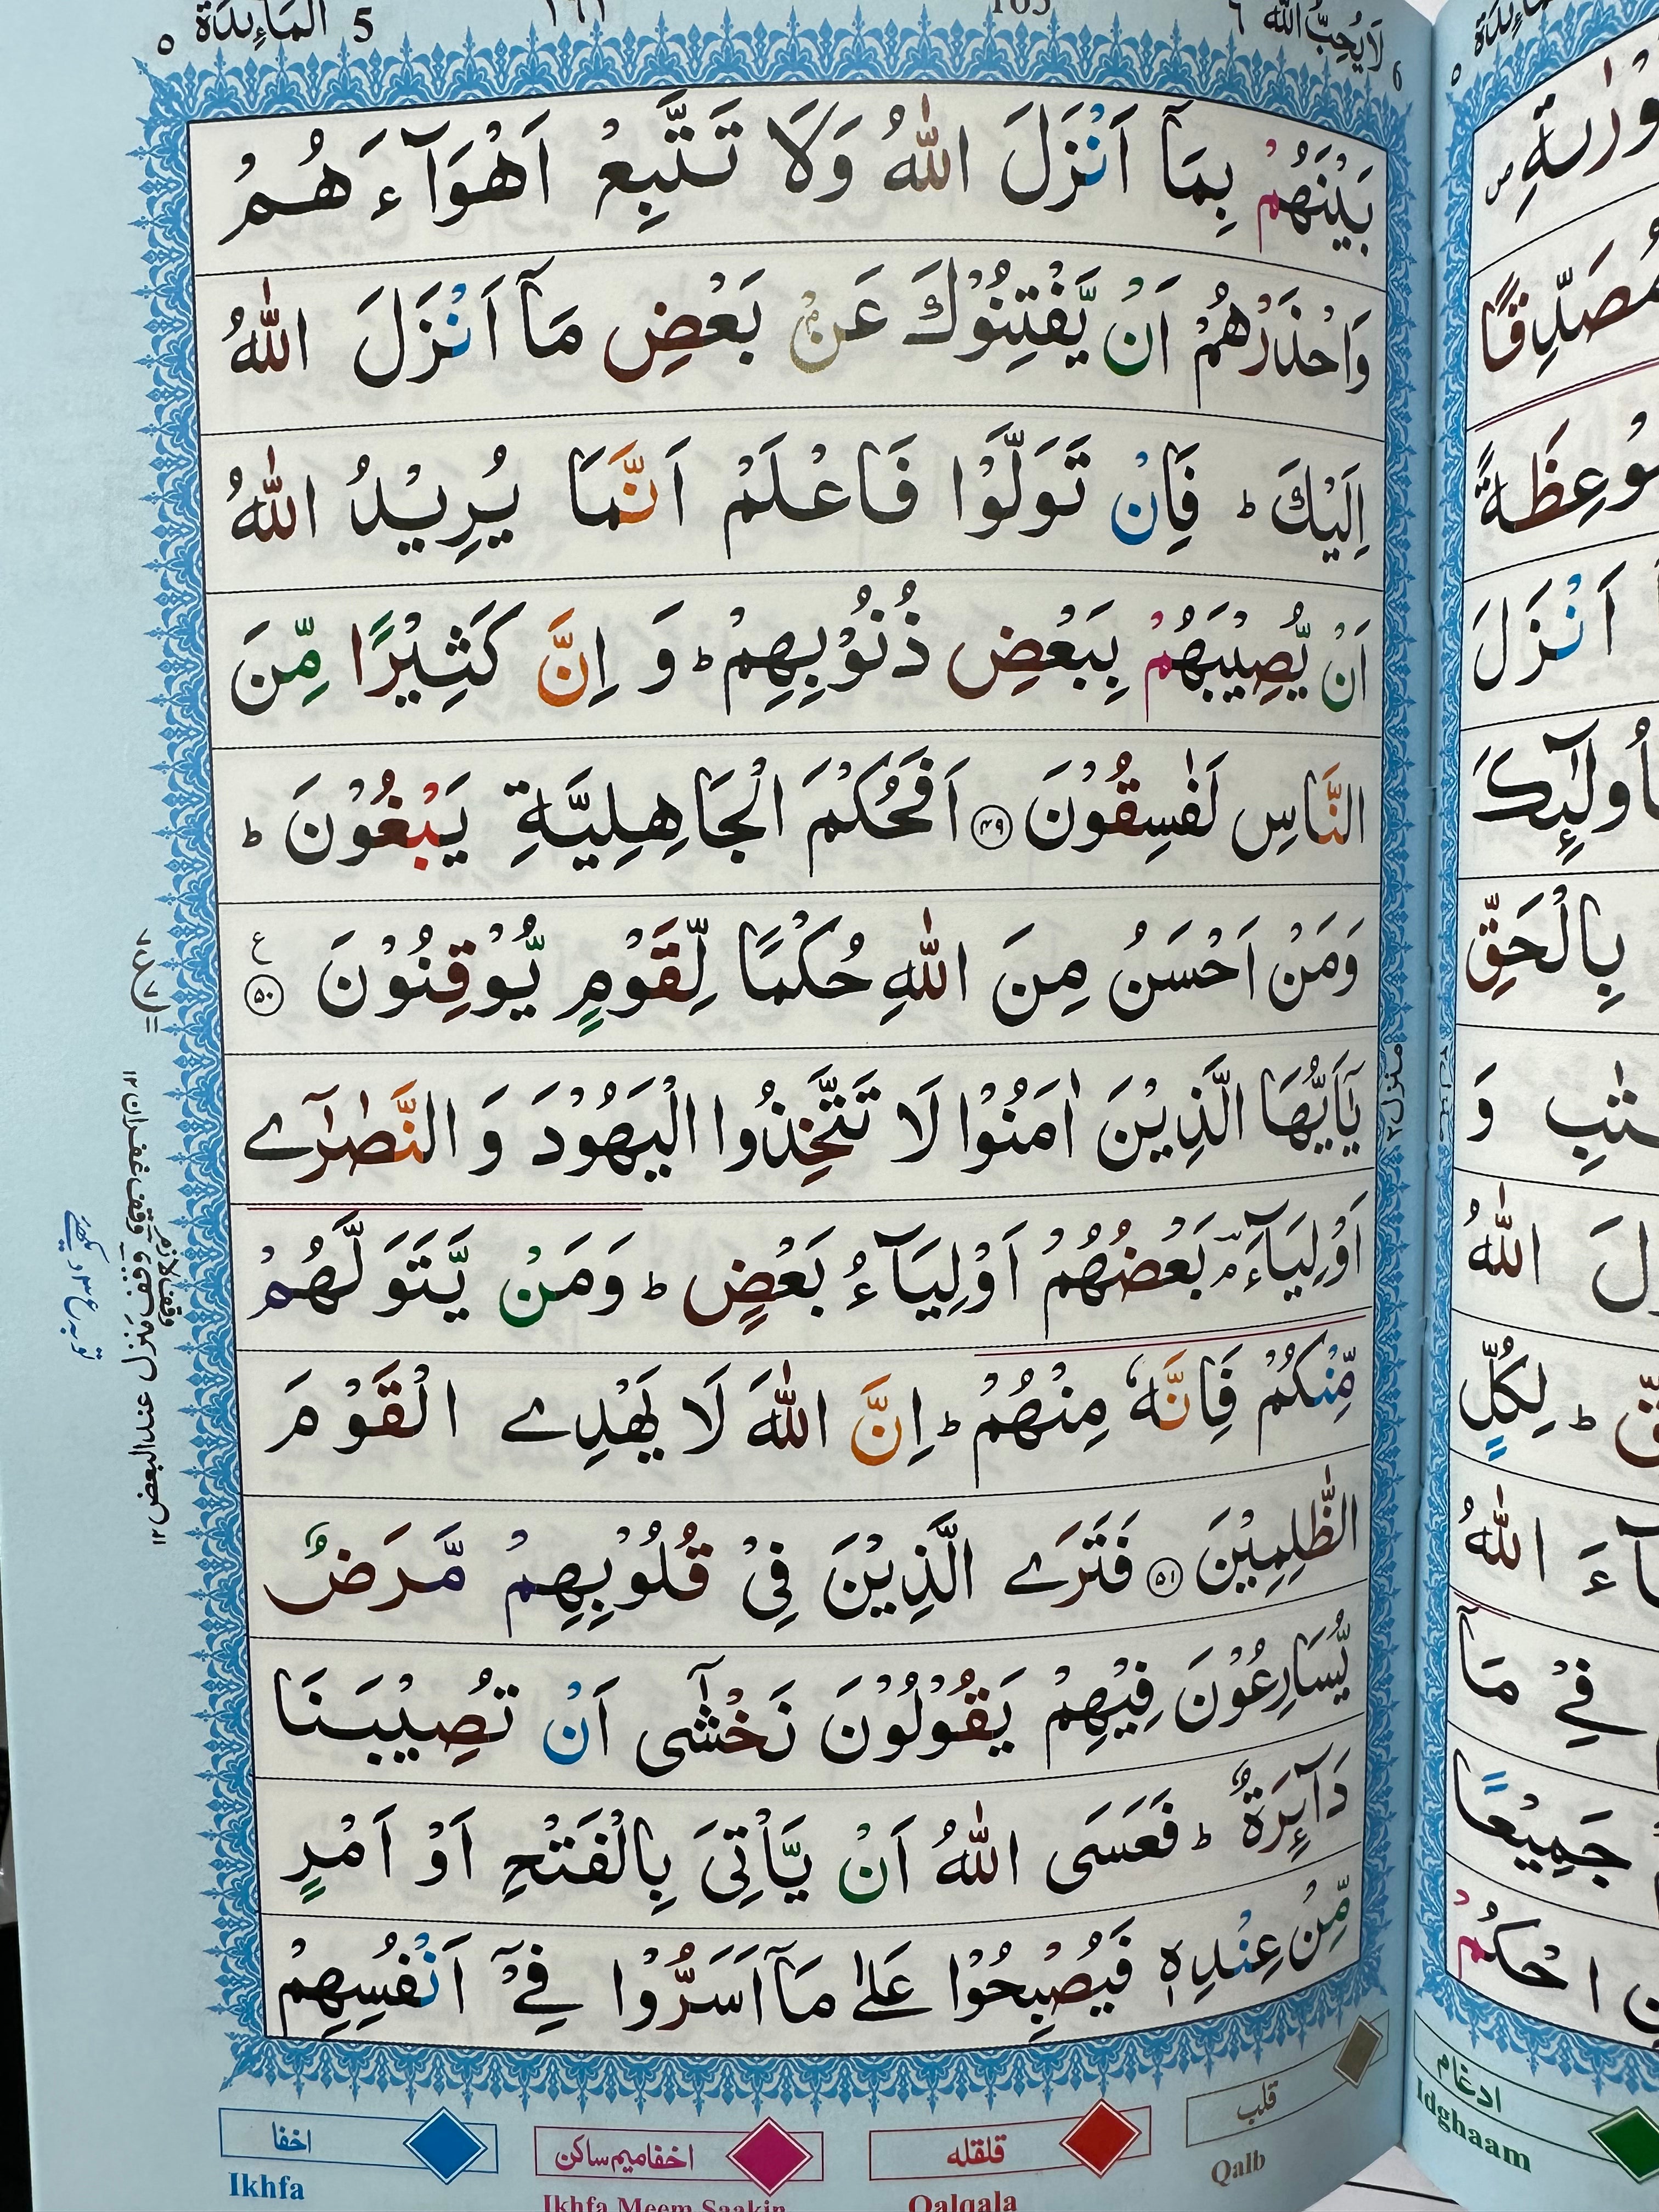 المآئدة 5
لا يحب الله ٦
بَيْنَهُمْ بِمَآ اَنْزَلَ اللّٰهُ وَلَا تَتَّبِعْ اَهْوَآءَهُمْ
وَاحْذَرْهُمْ اَنْ يَّفْتِنُوْكَ عَنْۢ بَعْضِ مَآ اَنْزَلَ اللّٰهُ
اِلَيْكَ ؕ فَاِنْ تَوَلَّوْا فَاعْلَمْ اَنَّمَا يُرِيْدُ اللّٰهُ
اَنْ يُّصِيْبَهُمْ بِبَعْضِ ذُنُوْبِهِمْ ؕ وَ اِنَّ كَثِيْرًا مِّنَ
النَّاسِ لَفٰسِقُوْنَ ۴۹ اَفَحُكْمَ الْجَاهِلِيَّةِ يَبْغُوْنَ ؕ
وَمَنْ اَحْسَنُ مِنَ اللّٰهِ حُكْمًا لِّقَوْمٍ يُّوْقِنُوْنَ ۵۰ ع
يٰۤاَيُّهَا الَّذِيْنَ اٰمَنُوْا لَا تَتَّخِذُوا الْيَهُوْدَ وَ النَّصٰرٰۤے
اَوْلِيَآءَ ۘؔ بَعْضُهُمْ اَوْلِيَآءُ بَعْضٍ ؕ وَمَنْ يَّتَوَلَّهُمْ
مِّنْكُمْ فَاِنَّهٗ مِنْهُمْ ؕ اِنَّ اللّٰهَ لَا يَهْدِے الْقَوْمَ
الظّٰلِمِيْنَ ۵۱ فَتَرَے الَّذِيْنَ فِيْ قُلُوْبِهِمْ مَّرَضٌ
يُّسَارِعُوْنَ فِيْهِمْ يَقُوْلُوْنَ نَخْشٰٓى اَنْ تُصِيْبَنَا
دَآئِرَةٌ ؕ فَعَسَى اللّٰهُ اَنْ يَّاْتِىَ بِالْفَتْحِ اَوْ اَمْرٍ
مِّنْ عِنْدِهٖ فَيُصْبِحُوْا عَلٰى مَآ اَسَرُّوْا فِيْۤ اَنْفُسِهِمْ
منزل ۲
وقف لازم
اخفا
Ikhfa
اخفا میم ساکن
Ikhfa Meem Saakin
قلقله
Qalqala
قلب
Qalb
ادغام
Idghaam
مُصَدِّقًا
اَنْزَلَ
بِالْحَقِّ
اللّٰهُ
لِكُلٍّ
اللّٰهُ
فِيْ مَآ
جَمِيْعًا
احْكُمْ